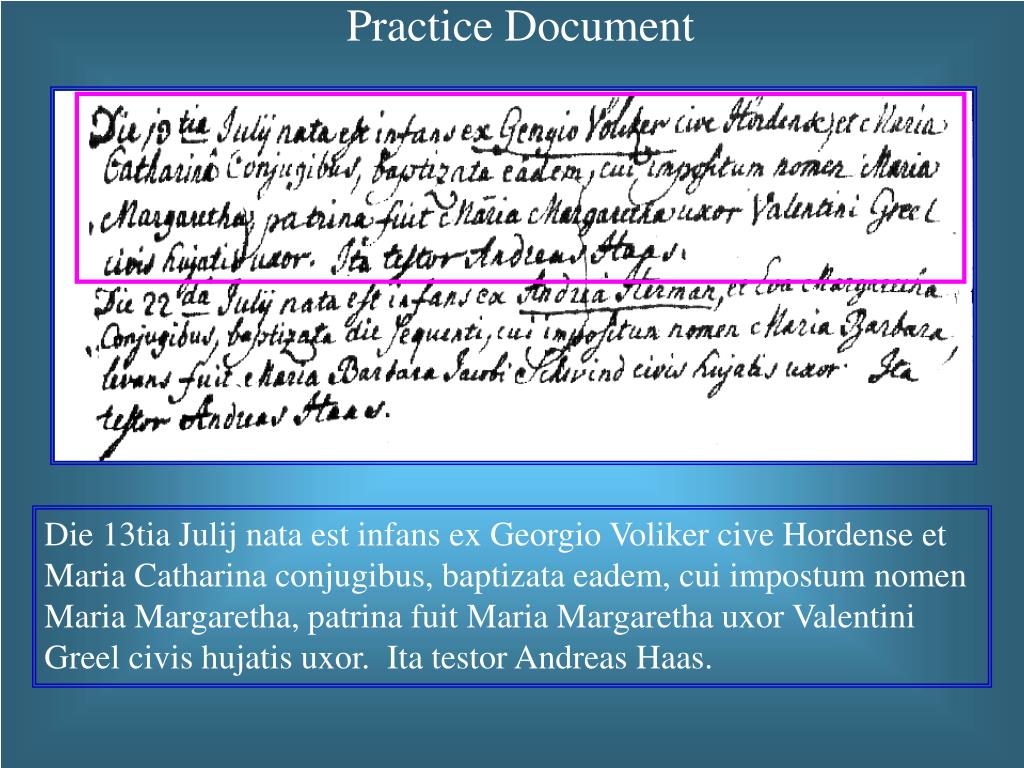 Practice Document
Die 13tia Julij nata est infans ex Georgio Voliker cive Hordense, et Maria
Catharinâ Conjugibus, baptizata eadem, cui impositum nomen Maria
Margaretha, patrina fuit Maria Margaretha uxor Valentini Greel
civis hujatis uxor. Ita testor Andreas Haas.
Die 22da Julij nata est infans ex Andrea Herman, et Eva Margaretha
Conjugibus, baptizata die sequenti, cui impositum nomen Maria Barbara,
levans fuit Maria Barbara Jacobi Schwind civis hujatis uxor. Ita
testor Andreas Haas.
Die 13tia Julij nata est infans ex Georgio Voliker cive Hordense et
Maria Catharina conjugibus, baptizata eadem, cui impostum nomen
Maria Margaretha, patrina fuit Maria Margaretha uxor Valentini
Greel civis hujatis uxor.  Ita testor Andreas Haas.